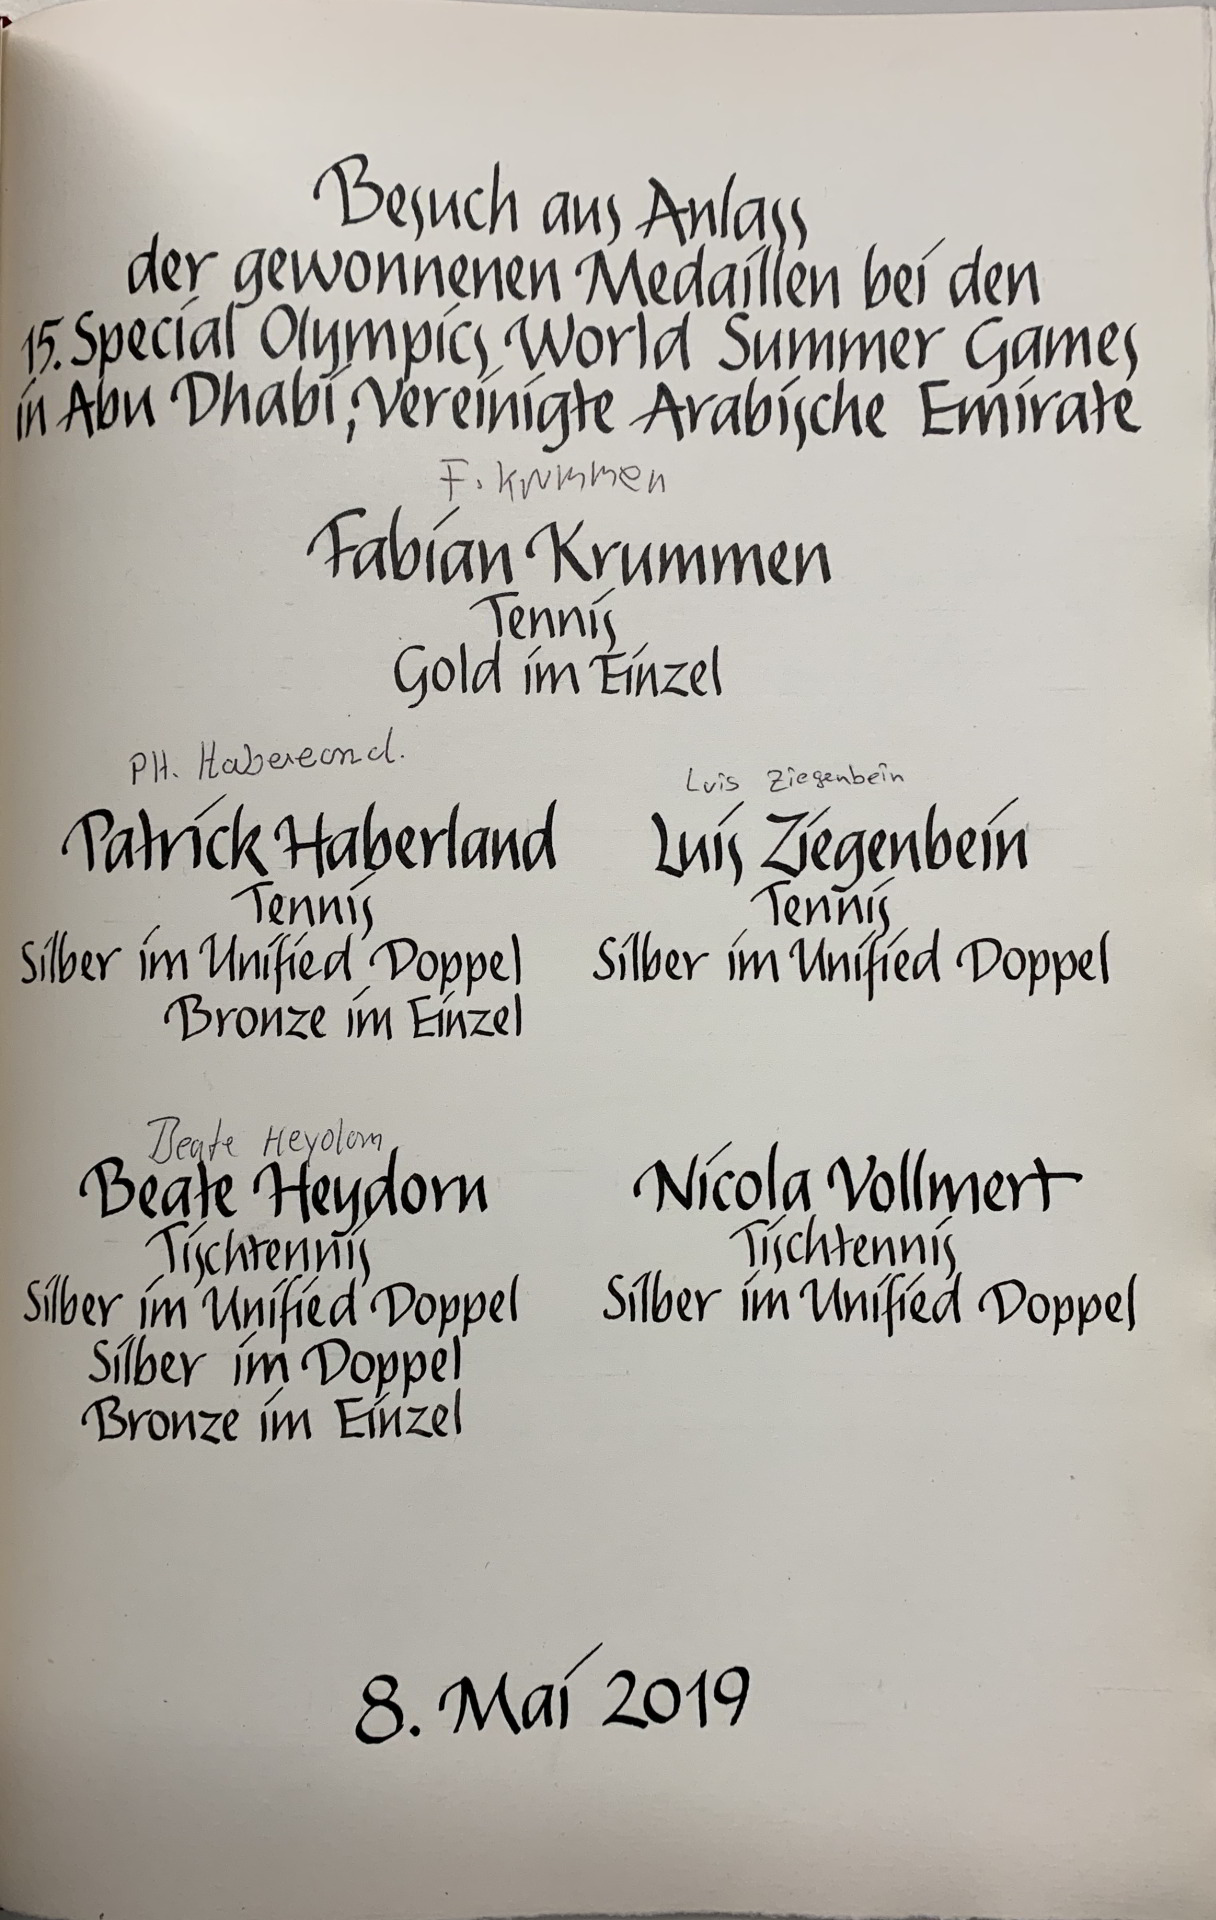 Besuch aus Anlass
der gewonnenen Medaillen bei den
15. Special Olympics World Summer Games
in Abu Dhabi, Vereinigte Arabische Emirate
F. Krummen
Fabian Krummen
Tennis
Gold im Einzel
PH. Haberland.
Patrick Haberland
Tennis
Silber im Unified Doppel
Bronze im Einzel
Luis Ziegenbein
Luis Ziegenbein
Tennis
Silber im Unified Doppel
Beate Heydorn
Beate Heydorn
Tischtennis
Silber im Unified Doppel
Silber im Doppel
Bronze im Einzel
Nicola Vollmert
Tischtennis
Silber im Unified Doppel
8. Mai 2019